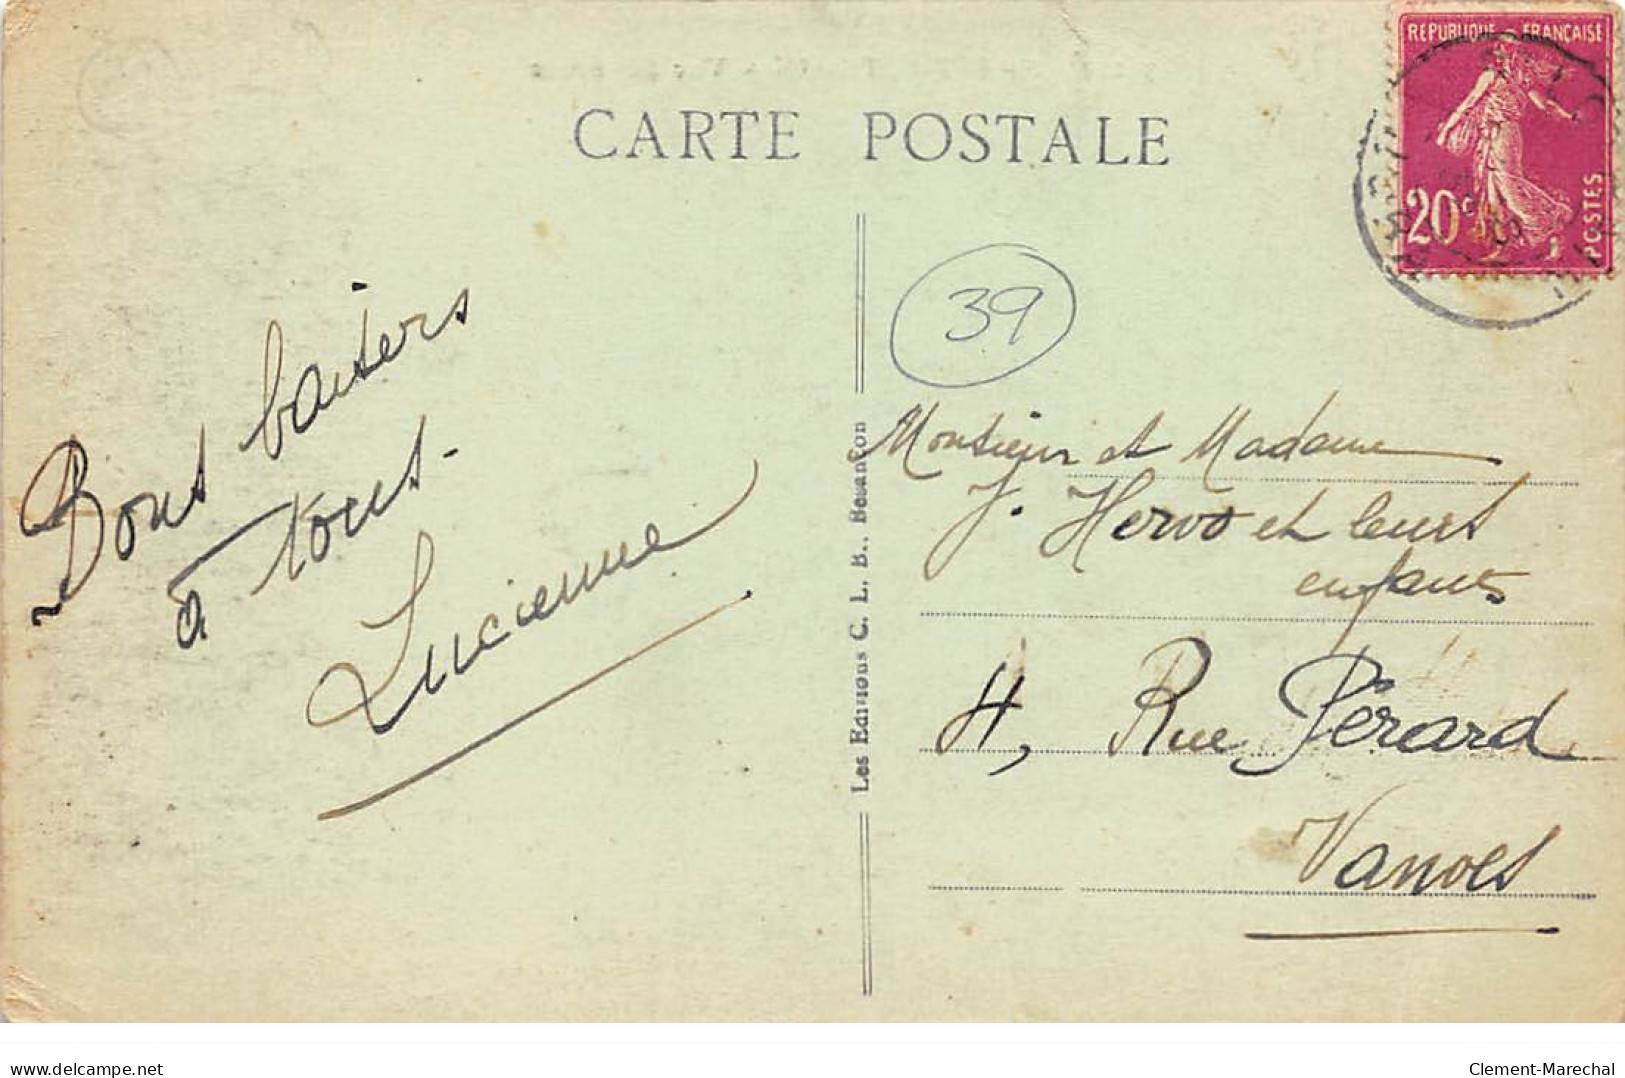 CARTE POSTALE
RÉPUBLIQUE FRANÇAISE
20c
POSTES
39
Bons baisers
à tous.
Lucienne
Les Editions C. L. B., Besançon
Monsieur et Madame
J. Hervo et leurs
enfants
4, Rue Pérard
Vanves
delcampe.net
Clement-Marechal